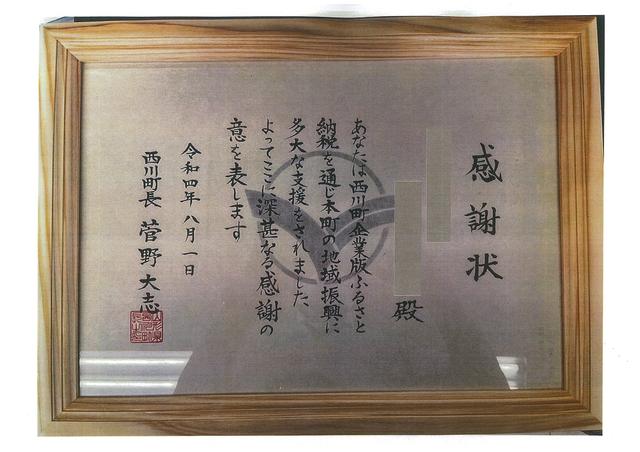 感謝状
殿
あなたは西川町企業版ふるさと
納税を通じ本町の地域振興に
多大な支援をされました
よってここに深甚なる感謝の
意を表します
令和四年八月一日
西川町長 菅野大志